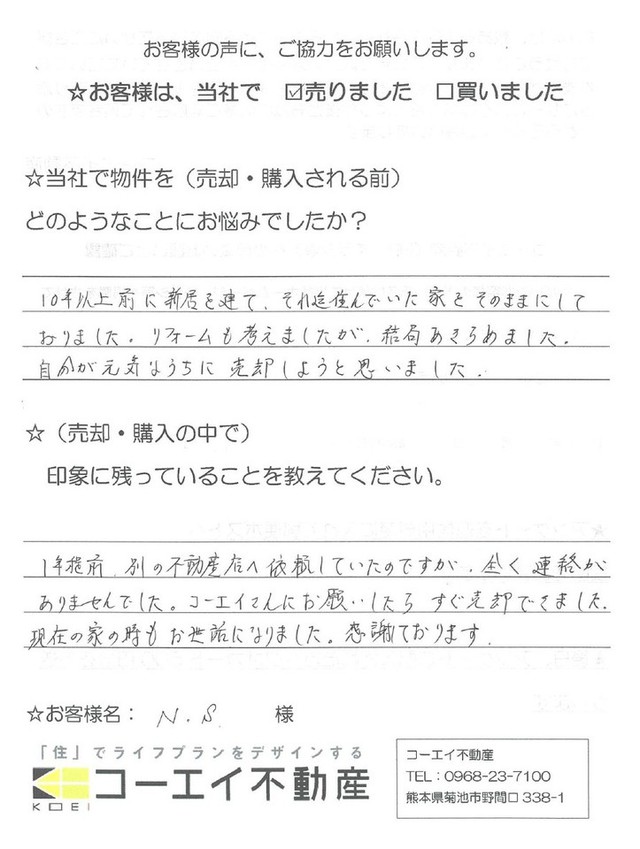 お客様の声に、ご協力をお願いします。
☆お客様は、当社で ☑売りました □買いました
☆当社で物件を（売却・購入される前）
どのようなことにお悩みでしたか？
10年以上前に新居を建て、それ迄住んでいた家をそのままにして
おりました。リフォームも考えましたが、結局あきらめました。
自分が元気なうちに売却しようと思いました。
☆（売却・購入の中で）
印象に残っていることを教えてください。
1年程前、別の不動産店へ依頼していたのですが、全く連絡が
ありませんでした。コーエイさんにお願いしたらすぐ売却できました。
現在の家の時もお世話になりました。感謝ております。
☆お客様名： N.S. 様
「住」でライフプランをデザインする
コーエイ不動産
KOEI
コーエイ不動産
TEL：0968-23-7100
熊本県菊池市野間口338-1